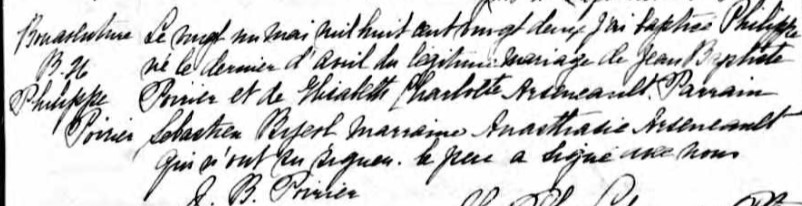 Bonaventure Le vingt un mai mil huit cent vingt deux j'ai baptisé Philippe
B. né le dernier d'avril du légitime mariage de Jean Baptiste
Philippe Poirier et de Elisabeth Charlotte Arseneault. Parrain
Poirier Sébastien marraine Anasthasie Arseneault
qui n'ont su signer. le père a signé avec nous
J. B. Poirier